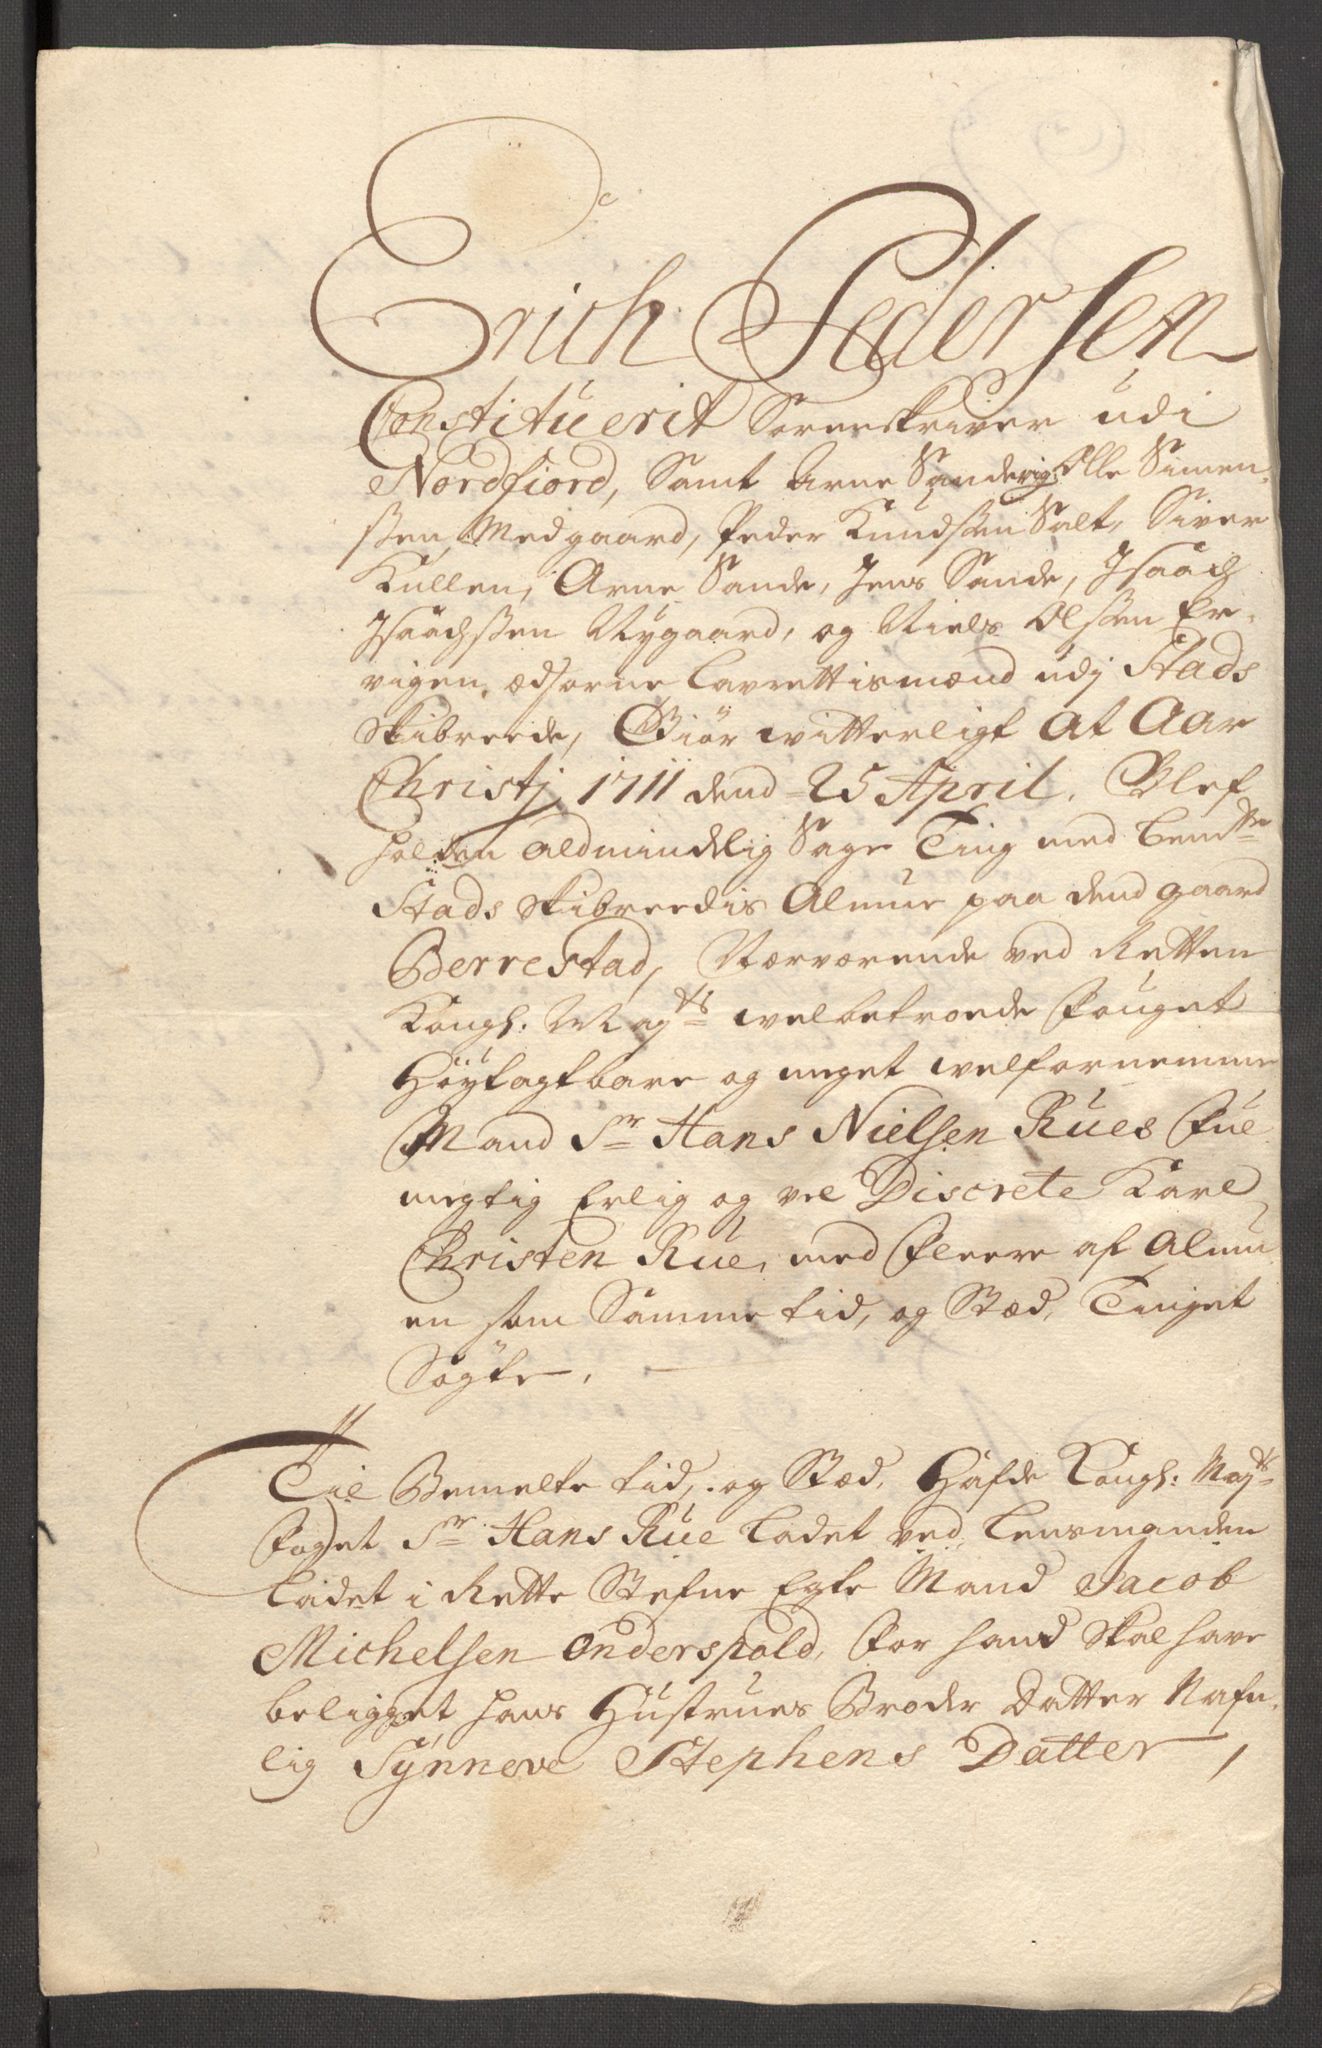 Erich Pedersen
Constituerit Sorenskriver udi
Nordfiord, Samt Arne Sandvig, Olle Simen-
ssen Medgaard, Peder Knudssen Salt, Siver
Kullen, Arne Sande, Jens Sande, Isaach
Isaachssen Nygaard, og Niels Olssen Er-
vigen, Edsorne laurettismænd udj Stads
Skibreede, Giör witterligt At Aar
Christj 1711 dend 25 April. Blef
holden aldmindelig Sage Ting med bemte
Stads Skibreedis Almue paa dend gaard
Berrestad, Nærværende ved Retten
Kongl: Mayts welbetroede Fouget
Höyagtbare og meget welfornemme
Mand Sr Hans Nielsen Rues Ful
megtig Erlig og vel Discrete Karl
Christen Rue, med fleere af Almu
en som Samme tid, og Stæd, Tinget
Sögte.
Til Bemelte tid, og Stæd, Hafde Kongl: Mayts
Foget Sr Hans Rue ladet ved Lensmanden
ladet i Rette Stefne Egte Mand Jacob
Michelsen Onderspold, for hand skal have
beligget hans Hustrues Broder Datter Nafn-
lig Synneve Stephens Datter,